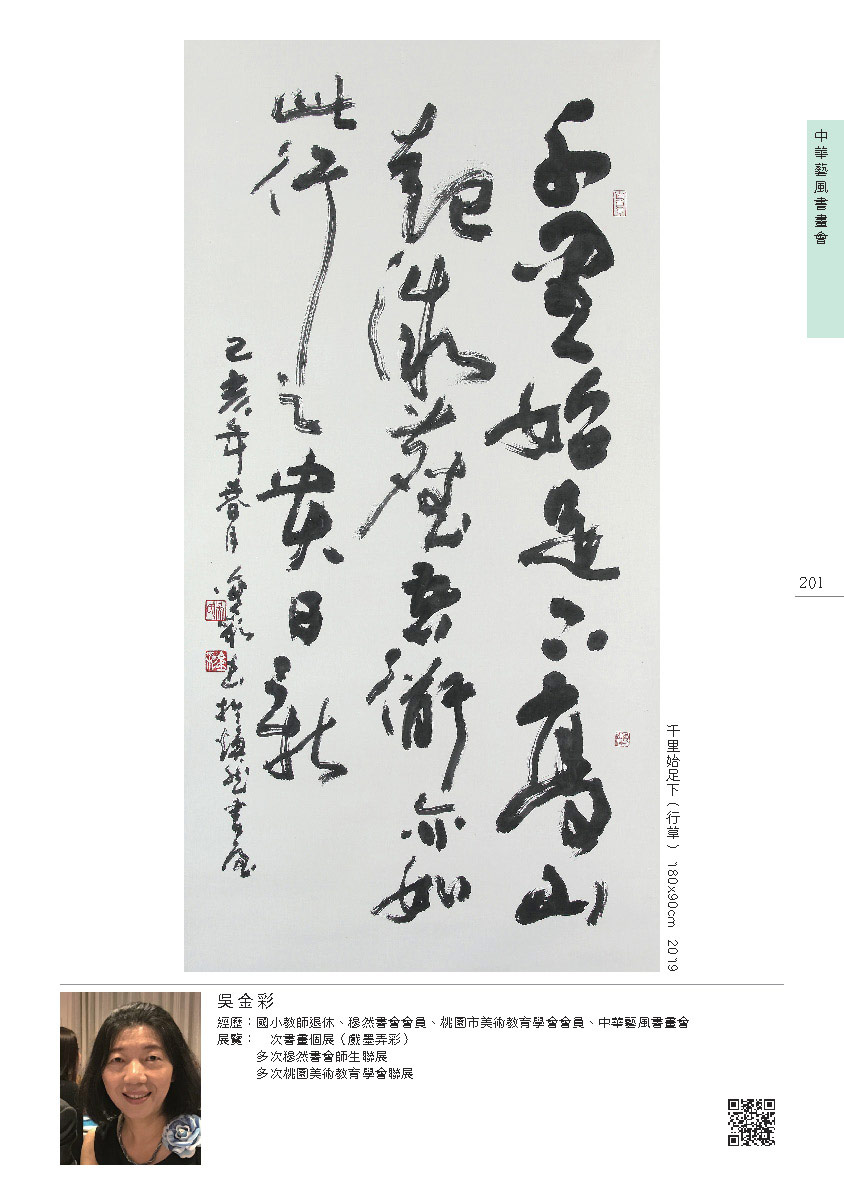 千里始足下高山
起微塵吾術亦如
此行之貴日新
己亥年暮月
金彩書於
書屋
中華藝風書畫會
201
千里始足下（行草） 180x90cm 2019
吳金彩
經歷：國小教師退休、穆然書會會員、桃園市美術教育學會會員、中華藝風書畫會
展覽： 次書畫個展（戲墨弄彩）
多次穆然書會師生聯展
多次桃園美術教育學會聯展